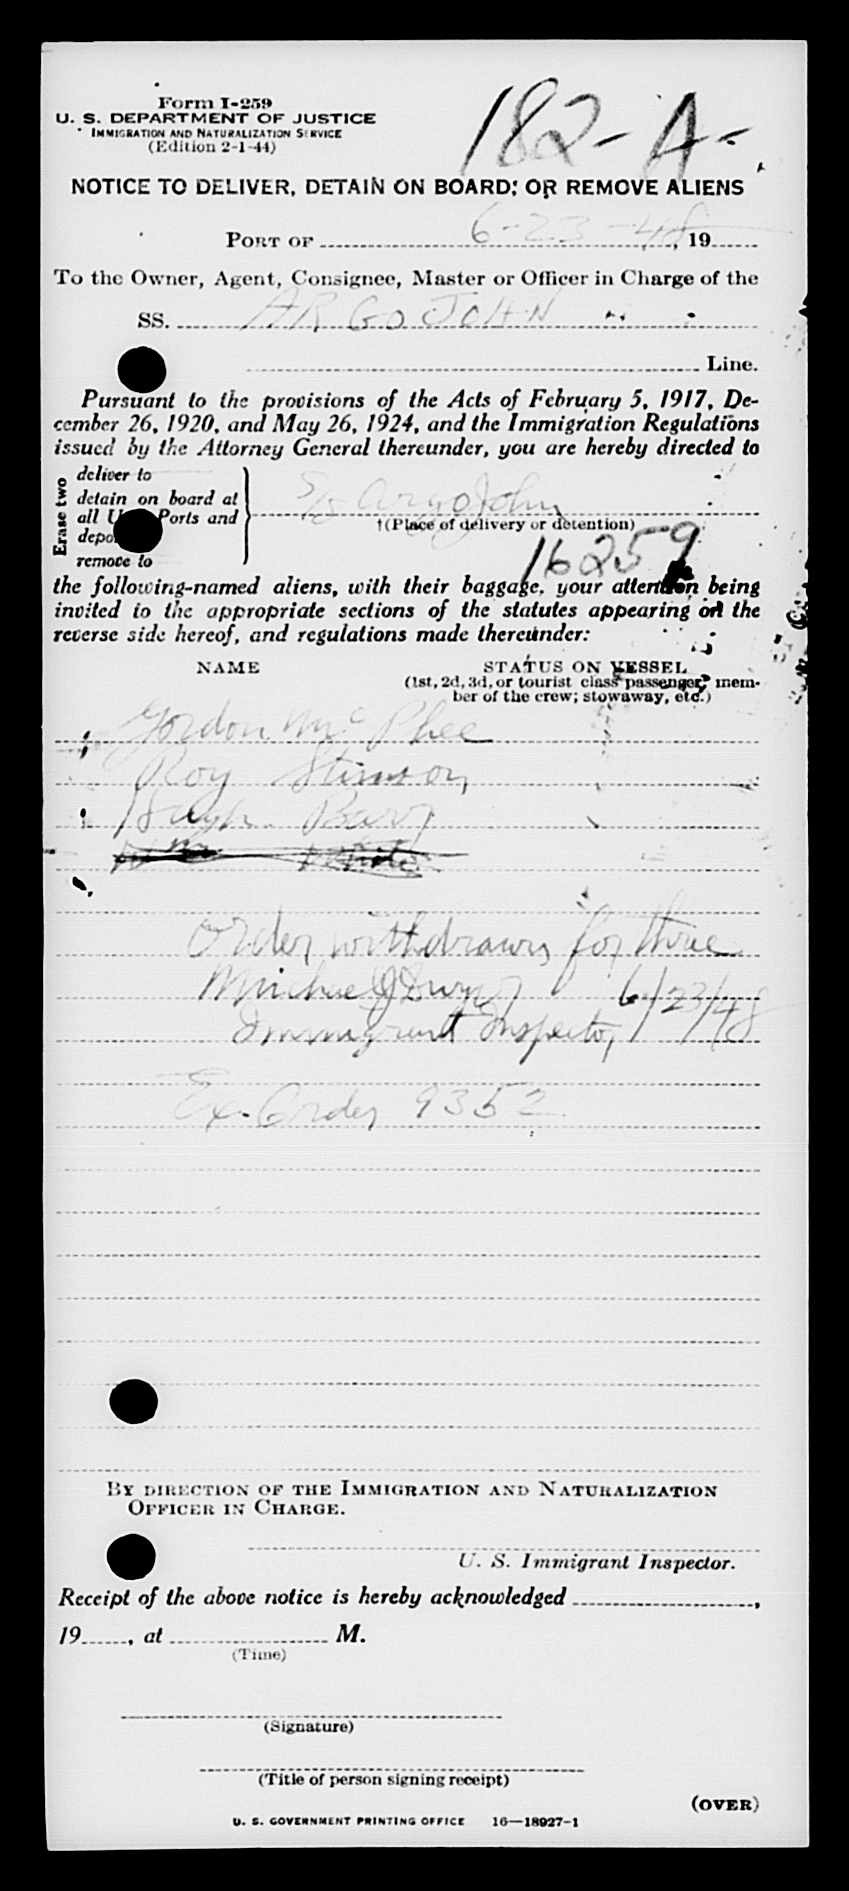 Form I-259
U. S. DEPARTMENT OF JUSTICE
IMMIGRATION AND NATURALIZATION SERVICE
(Edition 2-1-44)
182-A-
NOTICE TO DELIVER, DETAIN ON BOARD, OR REMOVE ALIENS
PORT OF 6-23-48, 19
To the Owner, Agent, Consignee, Master or Officer in Charge of the
SS. ARGOJOHN
Line.
Pursuant to the provisions of the Acts of February 5, 1917, De-
cember 26, 1920, and May 26, 1924, and the Immigration Regulations
issued by the Attorney General thereunder, you are hereby directed to
Erase two
deliver to
detain on board at
all U. Ports and
depo
remove to
S/S Argojohn
†(Place of delivery or detention)
16259
the following-named aliens, with their baggage, your attention being
invited to the appropriate sections of the statutes appearing on the
reverse side hereof, and regulations made thereunder:
NAME
STATUS ON VESSEL
(1st, 2d, 3d, or tourist class passenger, mem-
ber of the crew; stowaway, etc.)
Gordon McPhee
Roy Stimson
Hugh
Wm White
Order withdrawn for three
Michael J Dwyer 6/23/48
Immigrant Inspector
Ex. Order 9352
BY DIRECTION OF THE IMMIGRATION AND NATURALIZATION
OFFICER IN CHARGE.
U. S. Immigrant Inspector.
Receipt of the above notice is hereby acknowledged ,
19 , at M.
(Time)
(Signature)
(Title of person signing receipt)
(OVER)
U. S. GOVERNMENT PRINTING OFFICE 16—18927-1